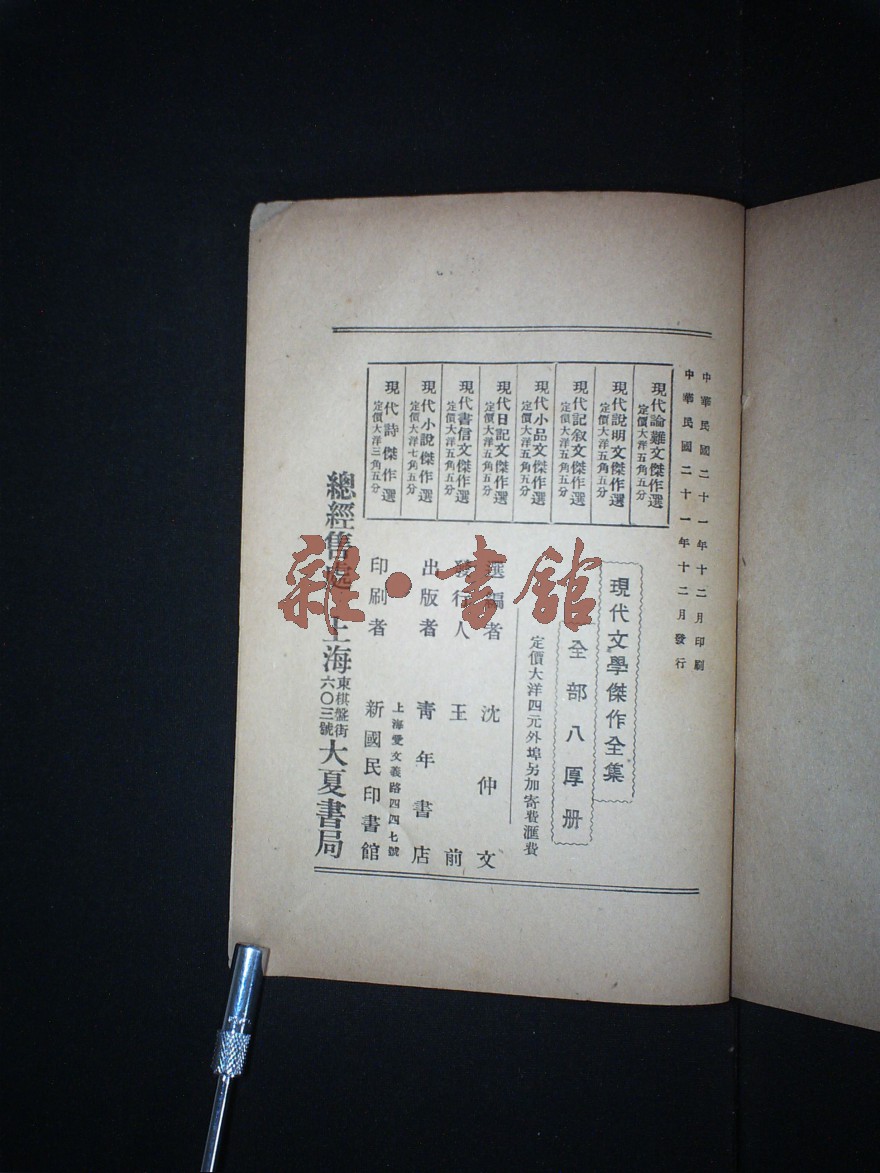 中華民國二十一年十二月印刷
中華民國二十一年十二月發行
現代論難文傑作選
定價大洋五角五分
現代說明文傑作選
定價大洋五角五分
現代記敘文傑作選
定價大洋五角五分
現代小品文傑作選
定價大洋五角五分
現代日記文傑作選
定價大洋五角五分
現代書信文傑作選
定價大洋五角五分
現代小說傑作選
定價大洋七角五分
現代詩傑作選
定價大洋三角五分
現代文學傑作全集
全部八厚册
定價大洋四元外埠另加寄費滙費
選編者 沈仲文
發行人 王前
出版者 青年書店
上海愛文義路四四七號
印刷者 新國民印書館
總經售處 上海東棋盤街六〇三號大夏書局
雜·書館